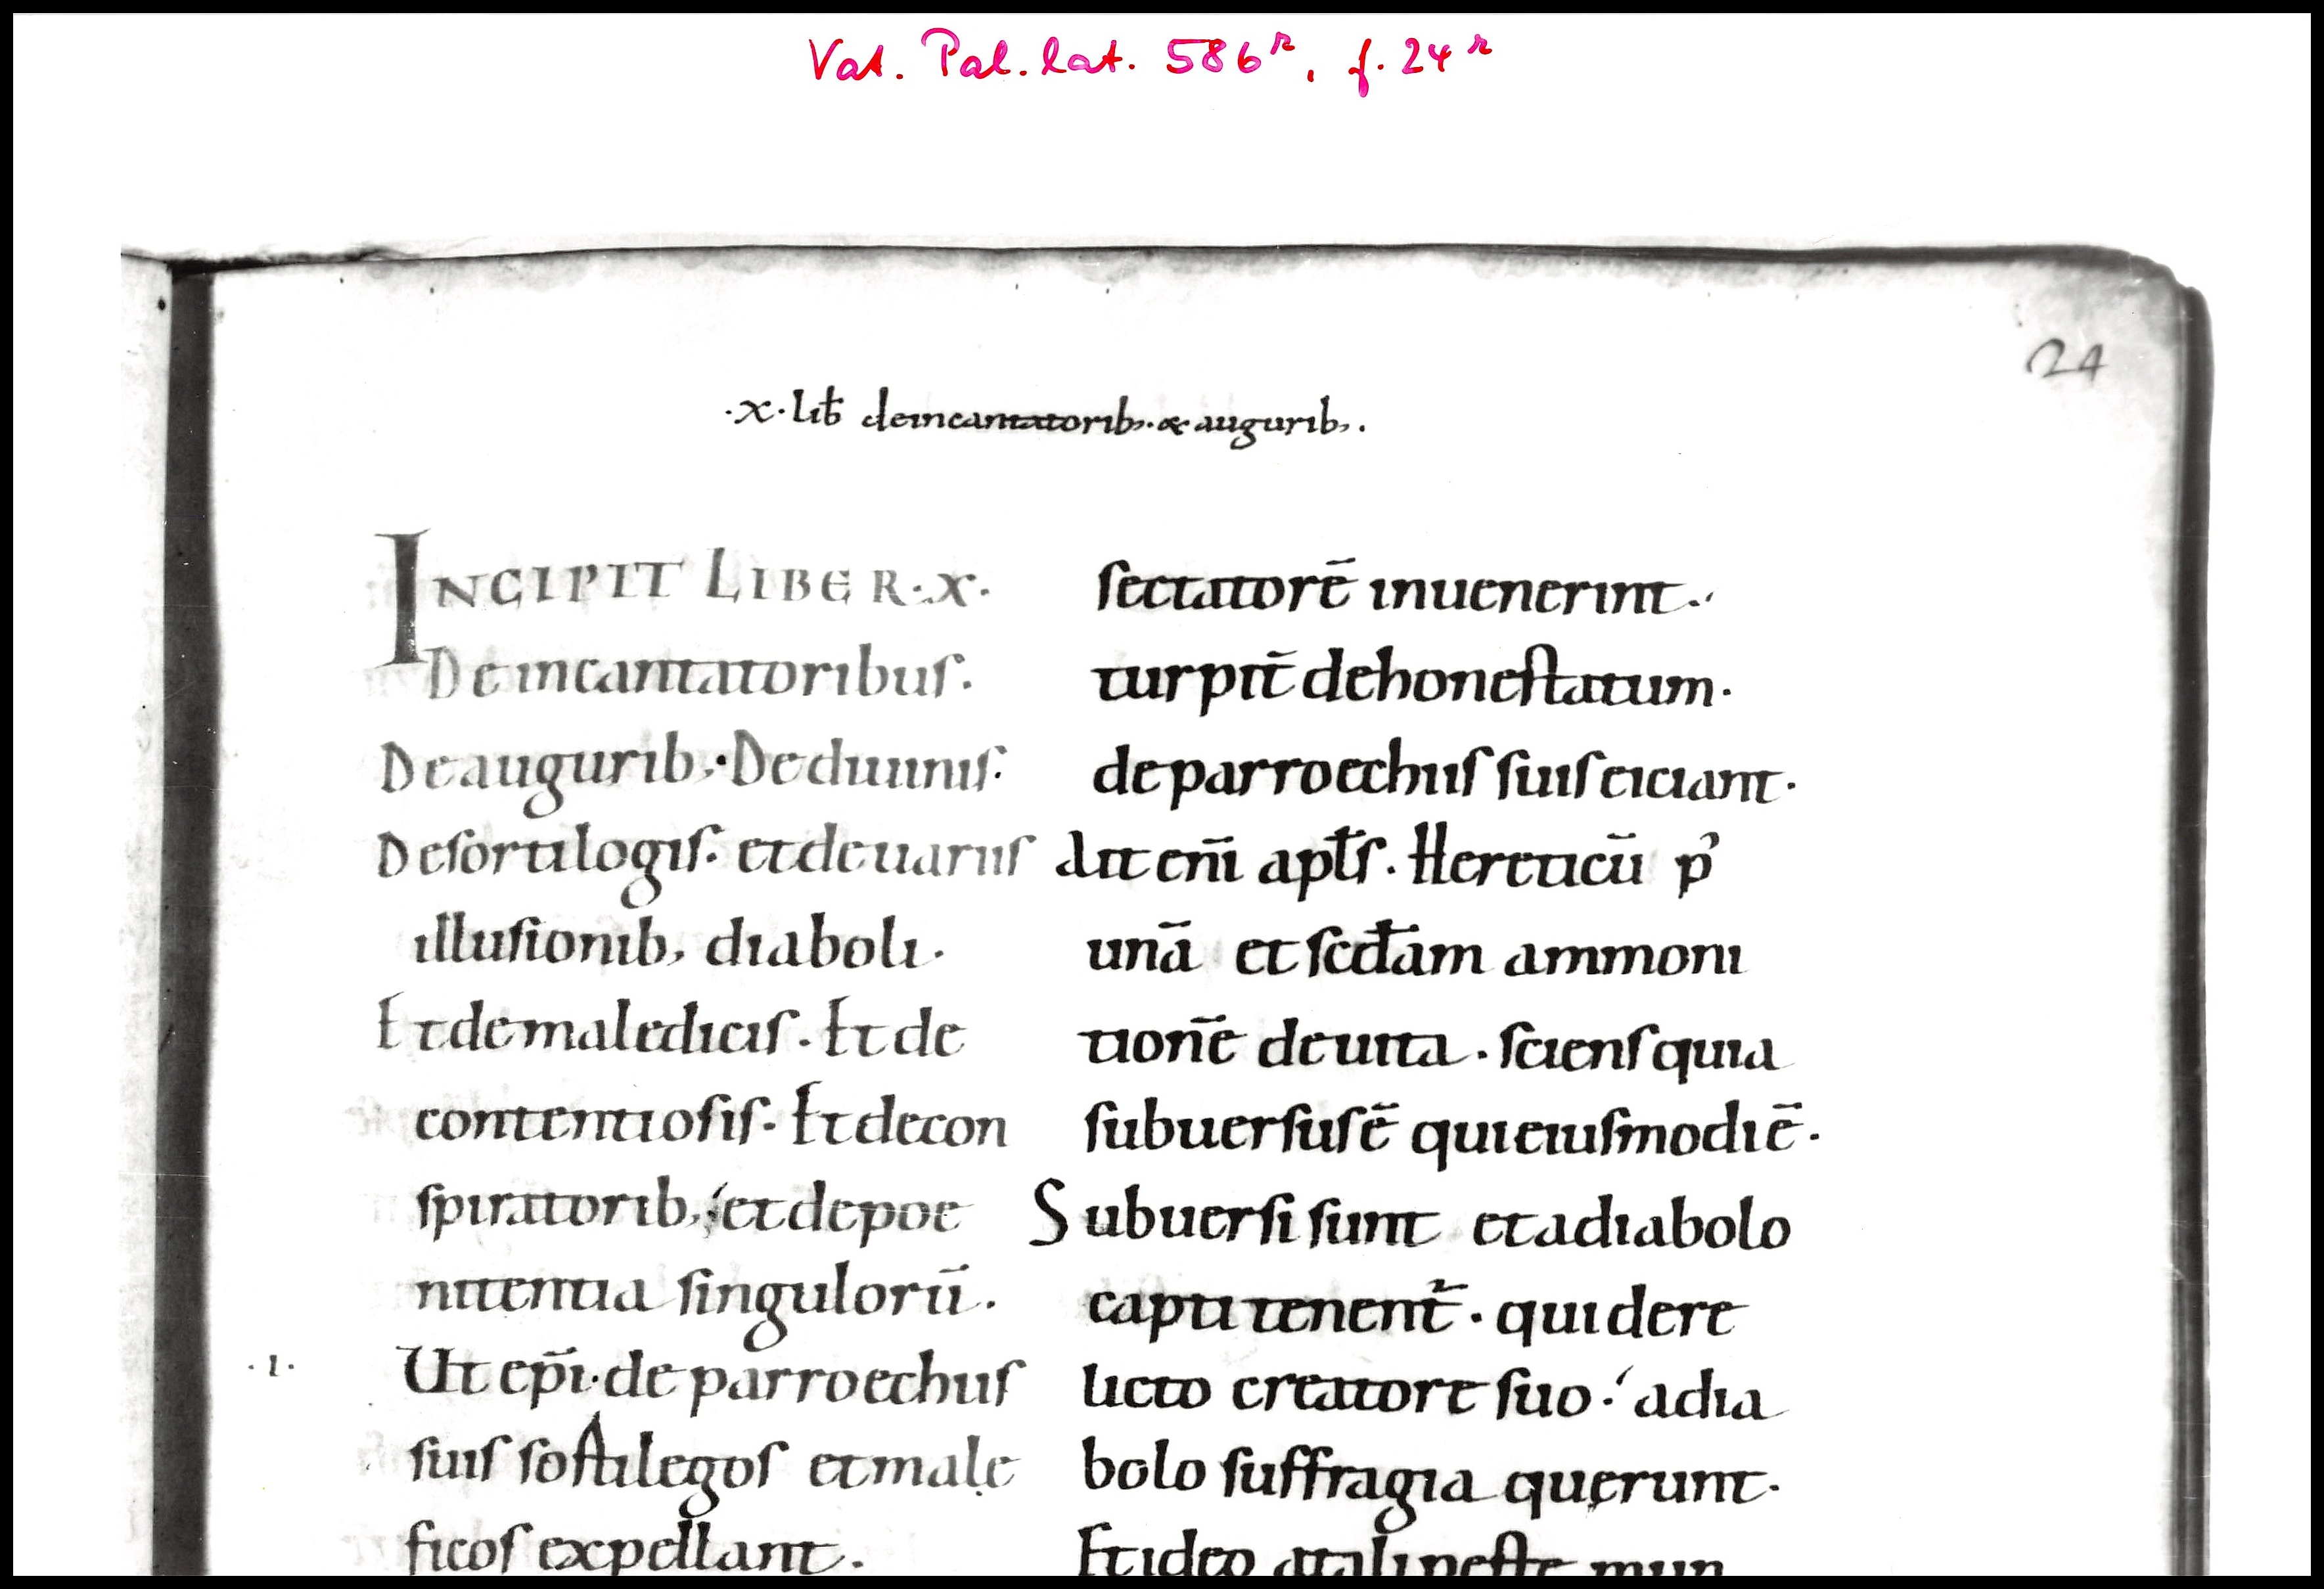 Vat. Pal. lat. 586ʳ, f. 24ʳ
24
·x· lib̄ deincantatorib;· & augurib;.
INCIPIT LIBER·X·
Deincantatoribus.
Deaugurib;·Dediuinis.
Desortilogis. etdeuariis
illusionib; diaboli.
Etdemaledicis. Et de
contentiosis. Etdecon
spiratorib; et depoe
nitentia singulorū.
·1· Ut ep̄i·de parroechiis
suis sortilegos et male
ficos expellant.
sectatorē inuenerint.
turpit̄ dehonestatum.
deparroechiis suis eiciant.
Ait eni̅ apl̄s. Hereticū p̓
unā et scd̄am ammoni
tionē deuita. sciens quia
subuersusē̄ quieiusmodiē̄.
Subuersi sunt et adiabolo
capti tenent᷑. quidere
licto creatore suo adia
bolo suffragia quęrunt.
Et ideo a tali peste mun